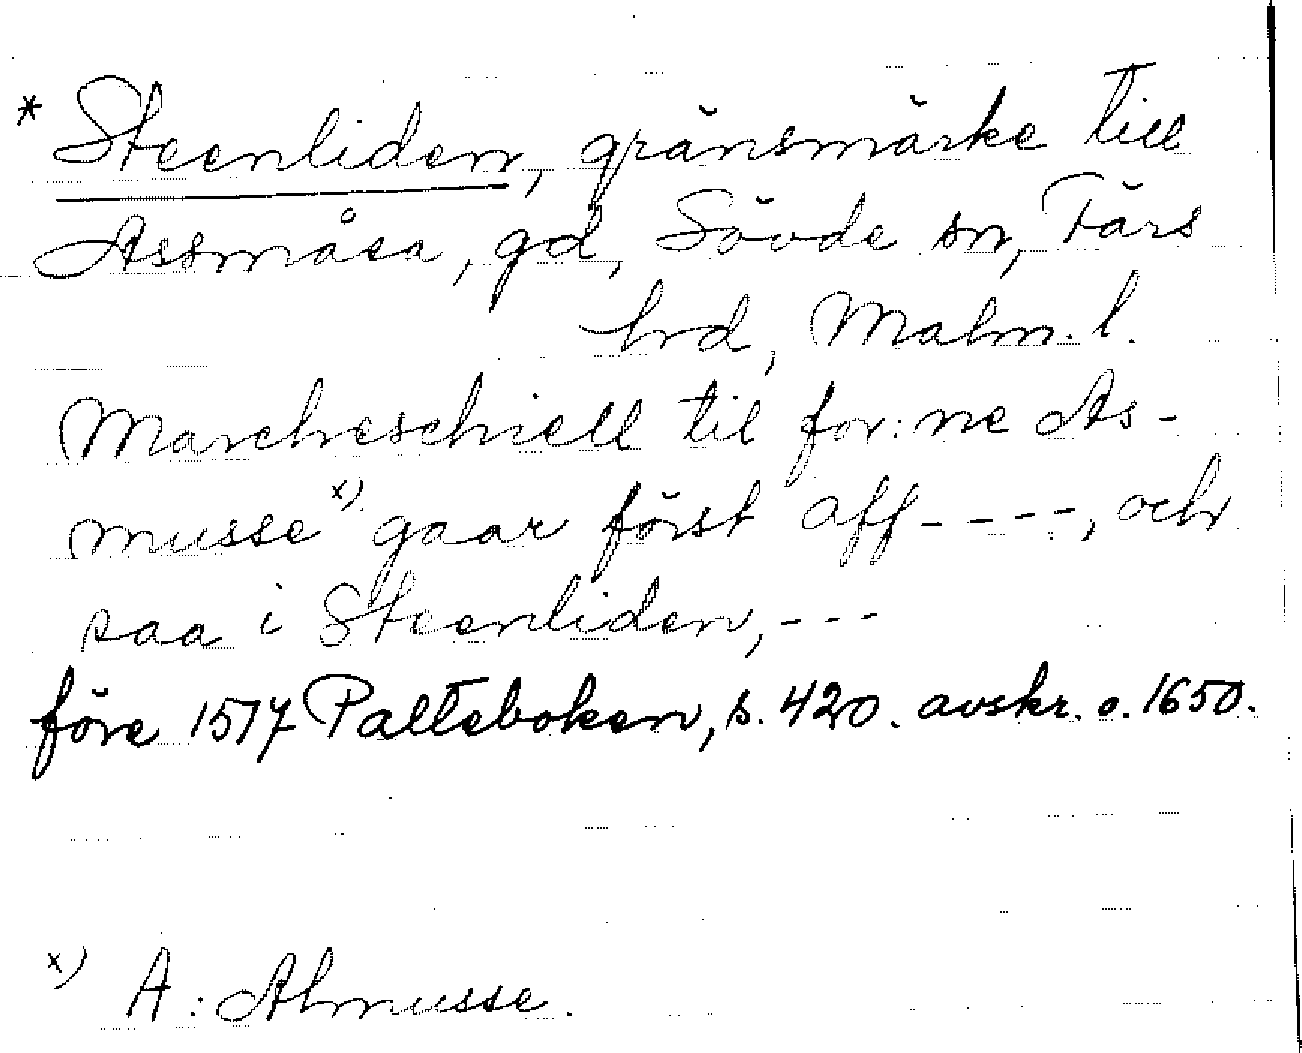 * Steenliden, gränsmärke till
Assmåsa, gd, Sövde sn, Färs
hrd, Malm. l.
Marcheschiell til for:ne As-
musse x) gaar först aff - - - -, och
saa i Steenliden, - - -
före 1517 Palteboken, s. 420. avskr. o. 1650.
x) A: Almusse.